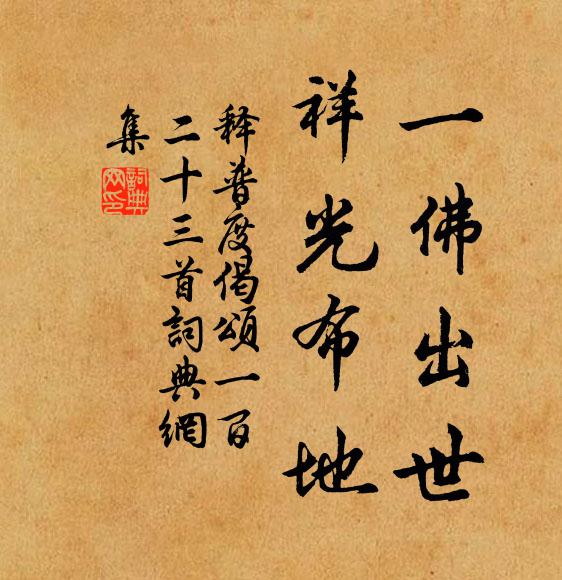 一佛出世
祥光布地
释普度偈頌一百
二十三首詞典網
集
詞典
网印